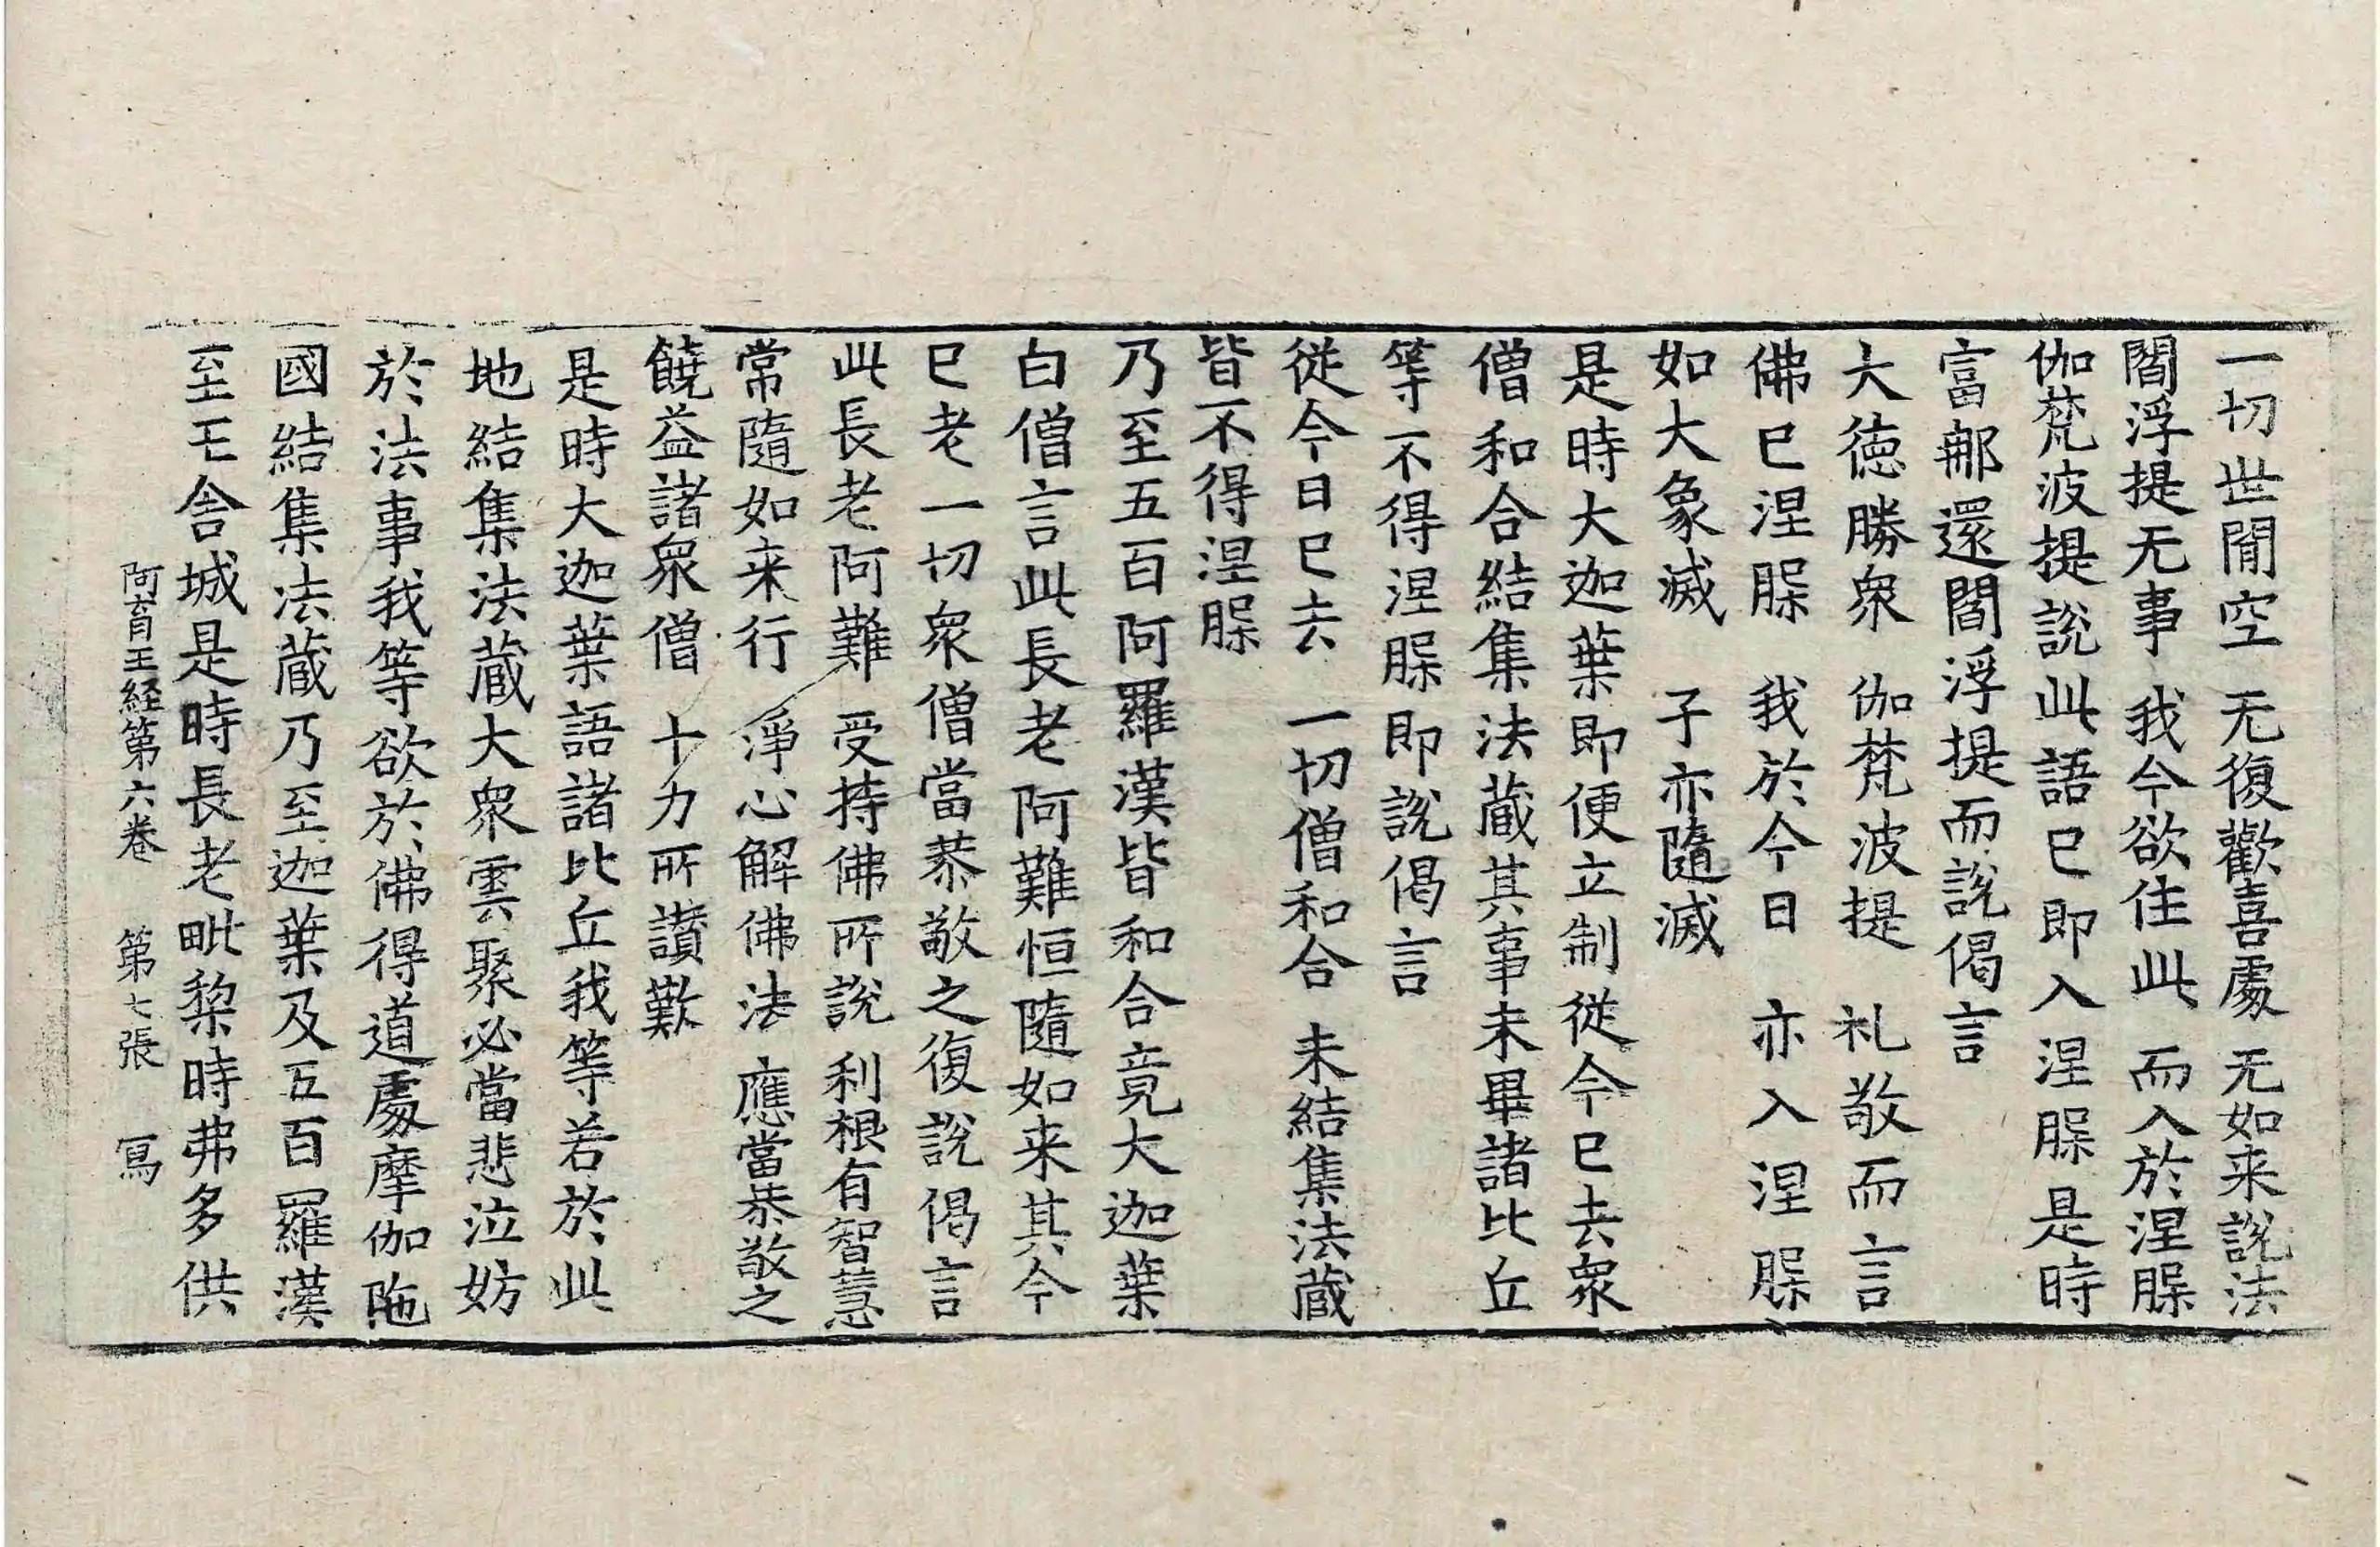 一切世間空　无復歡喜處　无如来說法
閻浮提无事　我今欲住此　而入於涅脲
伽梵波提說此語已即入涅脲是時
富那還閻浮提而說偈言
大徳勝衆　伽梵波提　礼敬而言
佛已涅脲　我於今日　亦入涅脲
如大象滅　子亦隨滅
是時大迦葉即便立制從今已去衆
僧和合結集法蔵其事未畢諸比丘
等不得涅脲即說偈言
從今日已去　一切僧和合　未結集法蔵
皆不得涅脲
乃至五百阿羅漢皆和合竟大迦葉
白僧言此長老阿難恒隨如来其今
已老一切衆僧當恭敬之復說偈言
此長老阿難　受持佛所說　利根有智慧
常隨如来行　淨心解佛法　應當恭敬之
饒益諸衆僧　十力所讃歎
是時大迦葉語諸比丘我等若於此
地結集法蔵大衆雲聚必當悲泣妨
於法事我等欲於佛得道處摩伽陁
國結集法蔵乃至迦葉及五百羅漢
至王舍城是時長老毗棃時弗多供
阿育王経第六卷　第七張　冩